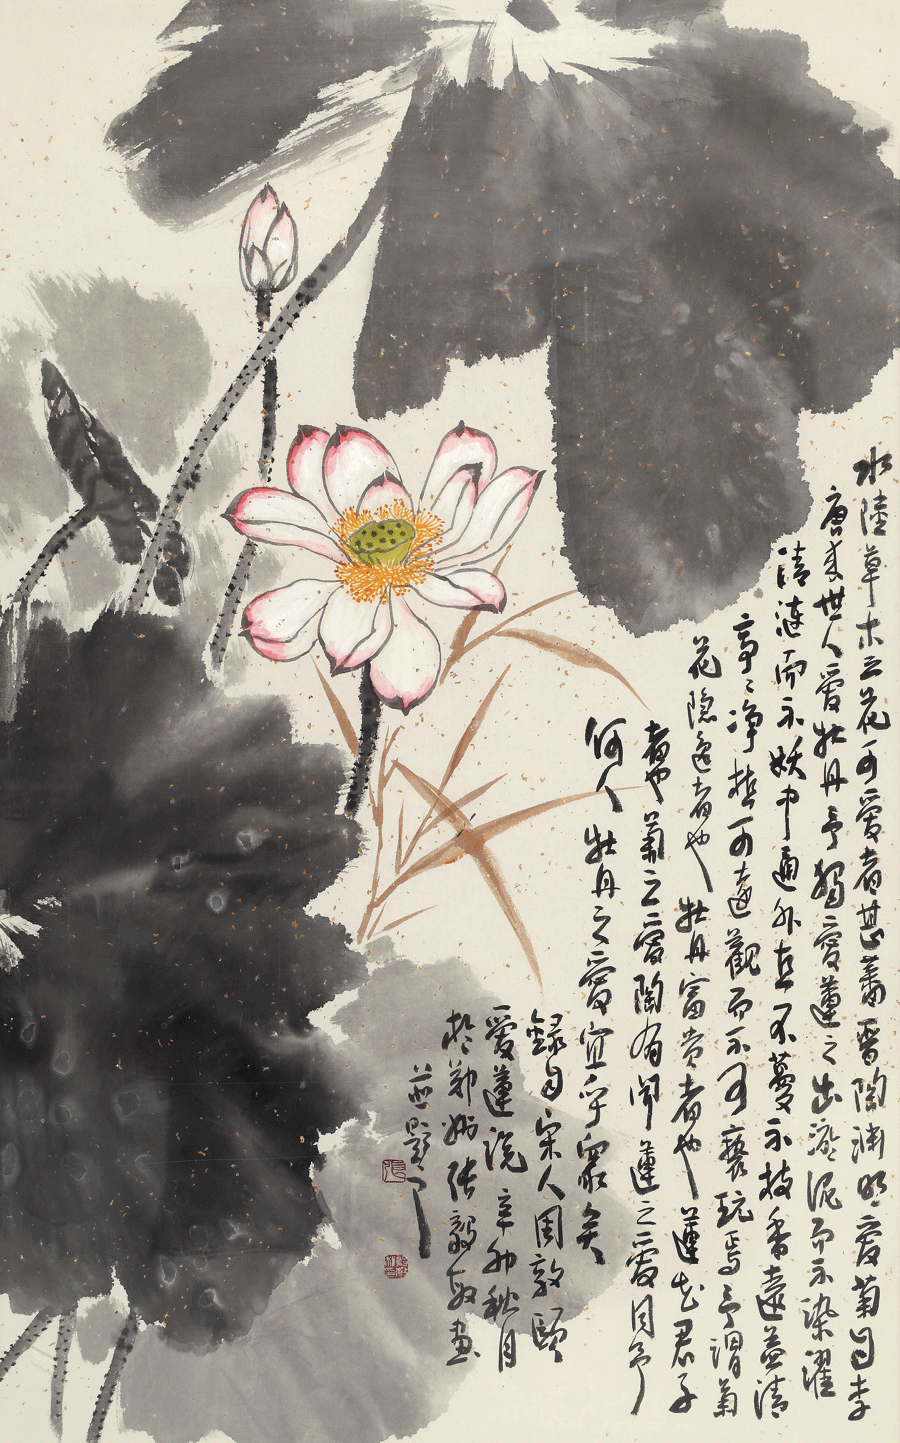 水陸草木之花可愛者甚蕃晋陶渊明愛菊自李
唐来世人愛牡丹予獨愛蓮之出淤泥而不染濯
清涟而不妖中通外直不蔓不枝香遠益清
亭々净植可遠觀而不可褻玩焉予謂菊
花隐逸者也牡丹富贵者也蓮花君子
者也菊之愛陶有闻蓮之愛同予
何人牡丹之愛宜乎眾矣
録自宋人周敦颐
愛蓮说辛卯秋月
於郑州张毅敏画
並題
张